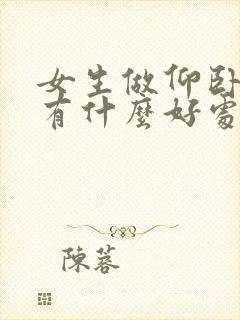 女生做仰卧
有什麼好處
陳蓉